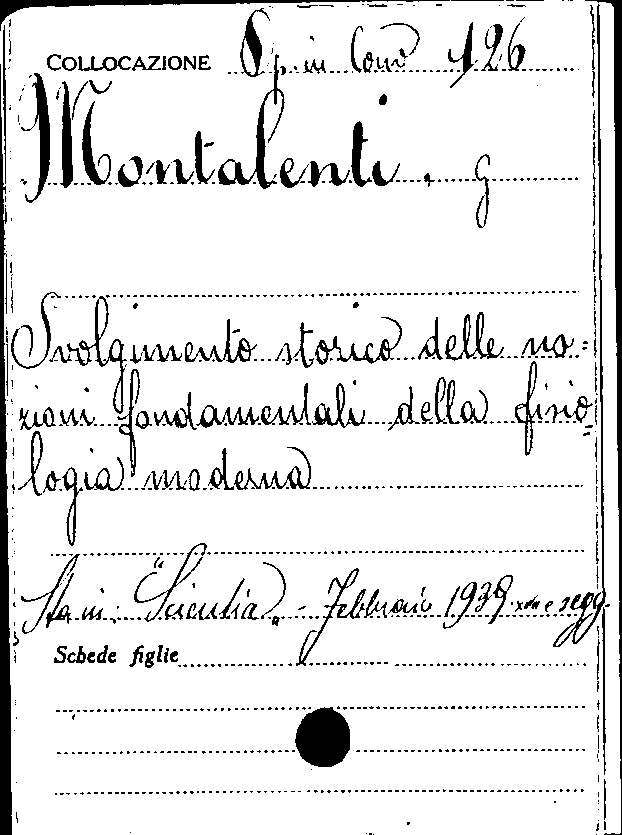 COLLOCAZIONE Sp. in Cons 126
Montalenti. G
Svolgimento storico delle no=
zioni fondamentali della fisio
=
logia moderna
Sta in: "Scientia" - Febbraio 1939 XVII e segg.
Schede figlie